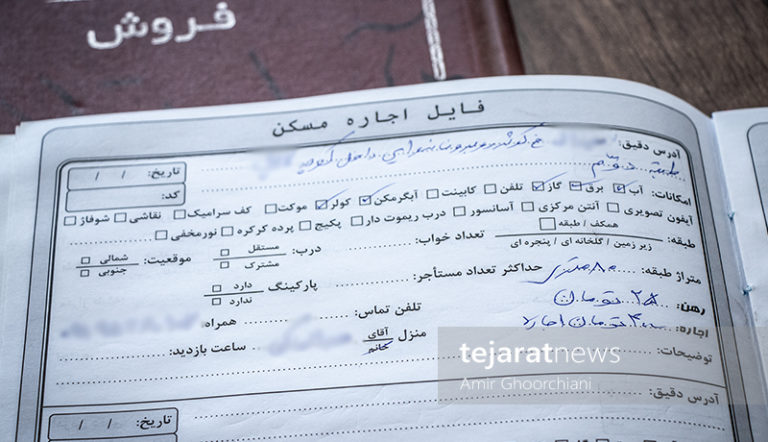 فروش
فایل اجاره مسکن
آدرس دقیق:
طبقه دوم
تاریخ: / /
کد:
امکانات: آب برق گاز تلفن کابینت آبگرمکن کولر موکت کف سرامیک نقاشی شوفاژ
آیفون تصویری آنتن مرکزی آسانسور درب ریموت دار پکیج پرده کرکره نورمخفی
طبقه: همکف / طبقه
زیر زمین / گلخانه ای / پنجره ای
تعداد خواب: درب: مستقل
مشترک
موقعیت: شمالی
جنوبی
متراژ طبقه: ۸۰ متری حداکثر تعداد مستأجر: پارکینگ دارد
ندارد
رهن: ۲۵ تومان تلفن تماس: همراه
اجاره: تومان اجاره منزل آقای
خانم
ساعت بازدید:
توضیحات:
tejaratnews
Amir Ghoorchiani
آدرس دقیق:
تاریخ: / /